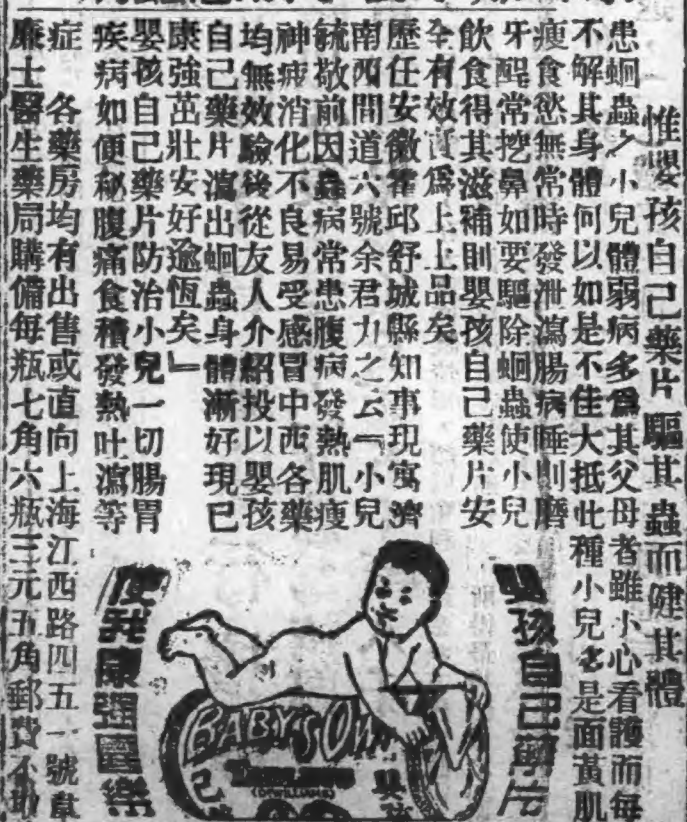 惟嬰孩自己藥片驅其蟲而健其體
患蛔蟲之小兒體弱病多爲其父母者雖小心看護而每
不解其身體何以如是不佳大抵此種小兒多是面黃肌
瘦食慾無常時發泄瀉腸病睡則磨
牙醒常挖鼻如要驅除蛔蟲使小兒
飲食得其滋補則嬰孩自己藥片安
全有效實爲上上品矣
歷任安徽霍邱舒城縣知事現寓濟
南西間道六號余君力之云『小兒
毓敬前因蟲病常患腹病發熱肌瘦
神疲消化不良易受感冒中西各藥
均無效驗後從友人介紹投以嬰孩
自己藥片瀉出蛔蟲身體漸好現已
康強茁壯安好逾恆矣』
嬰孩自己藥片防治小兒一切腸胃
疾病如便秘腹痛食積發熱吐瀉等
症 各藥房均有出售或直向上海江西路四五一號韋
廉士醫生藥局購備每瓶七角六瓶三元五角郵費不加
嬰孩自己藥片
使我康强
BABY'S OWN
TABLETS
(DR WILLIAMS)
嬰孩
自己